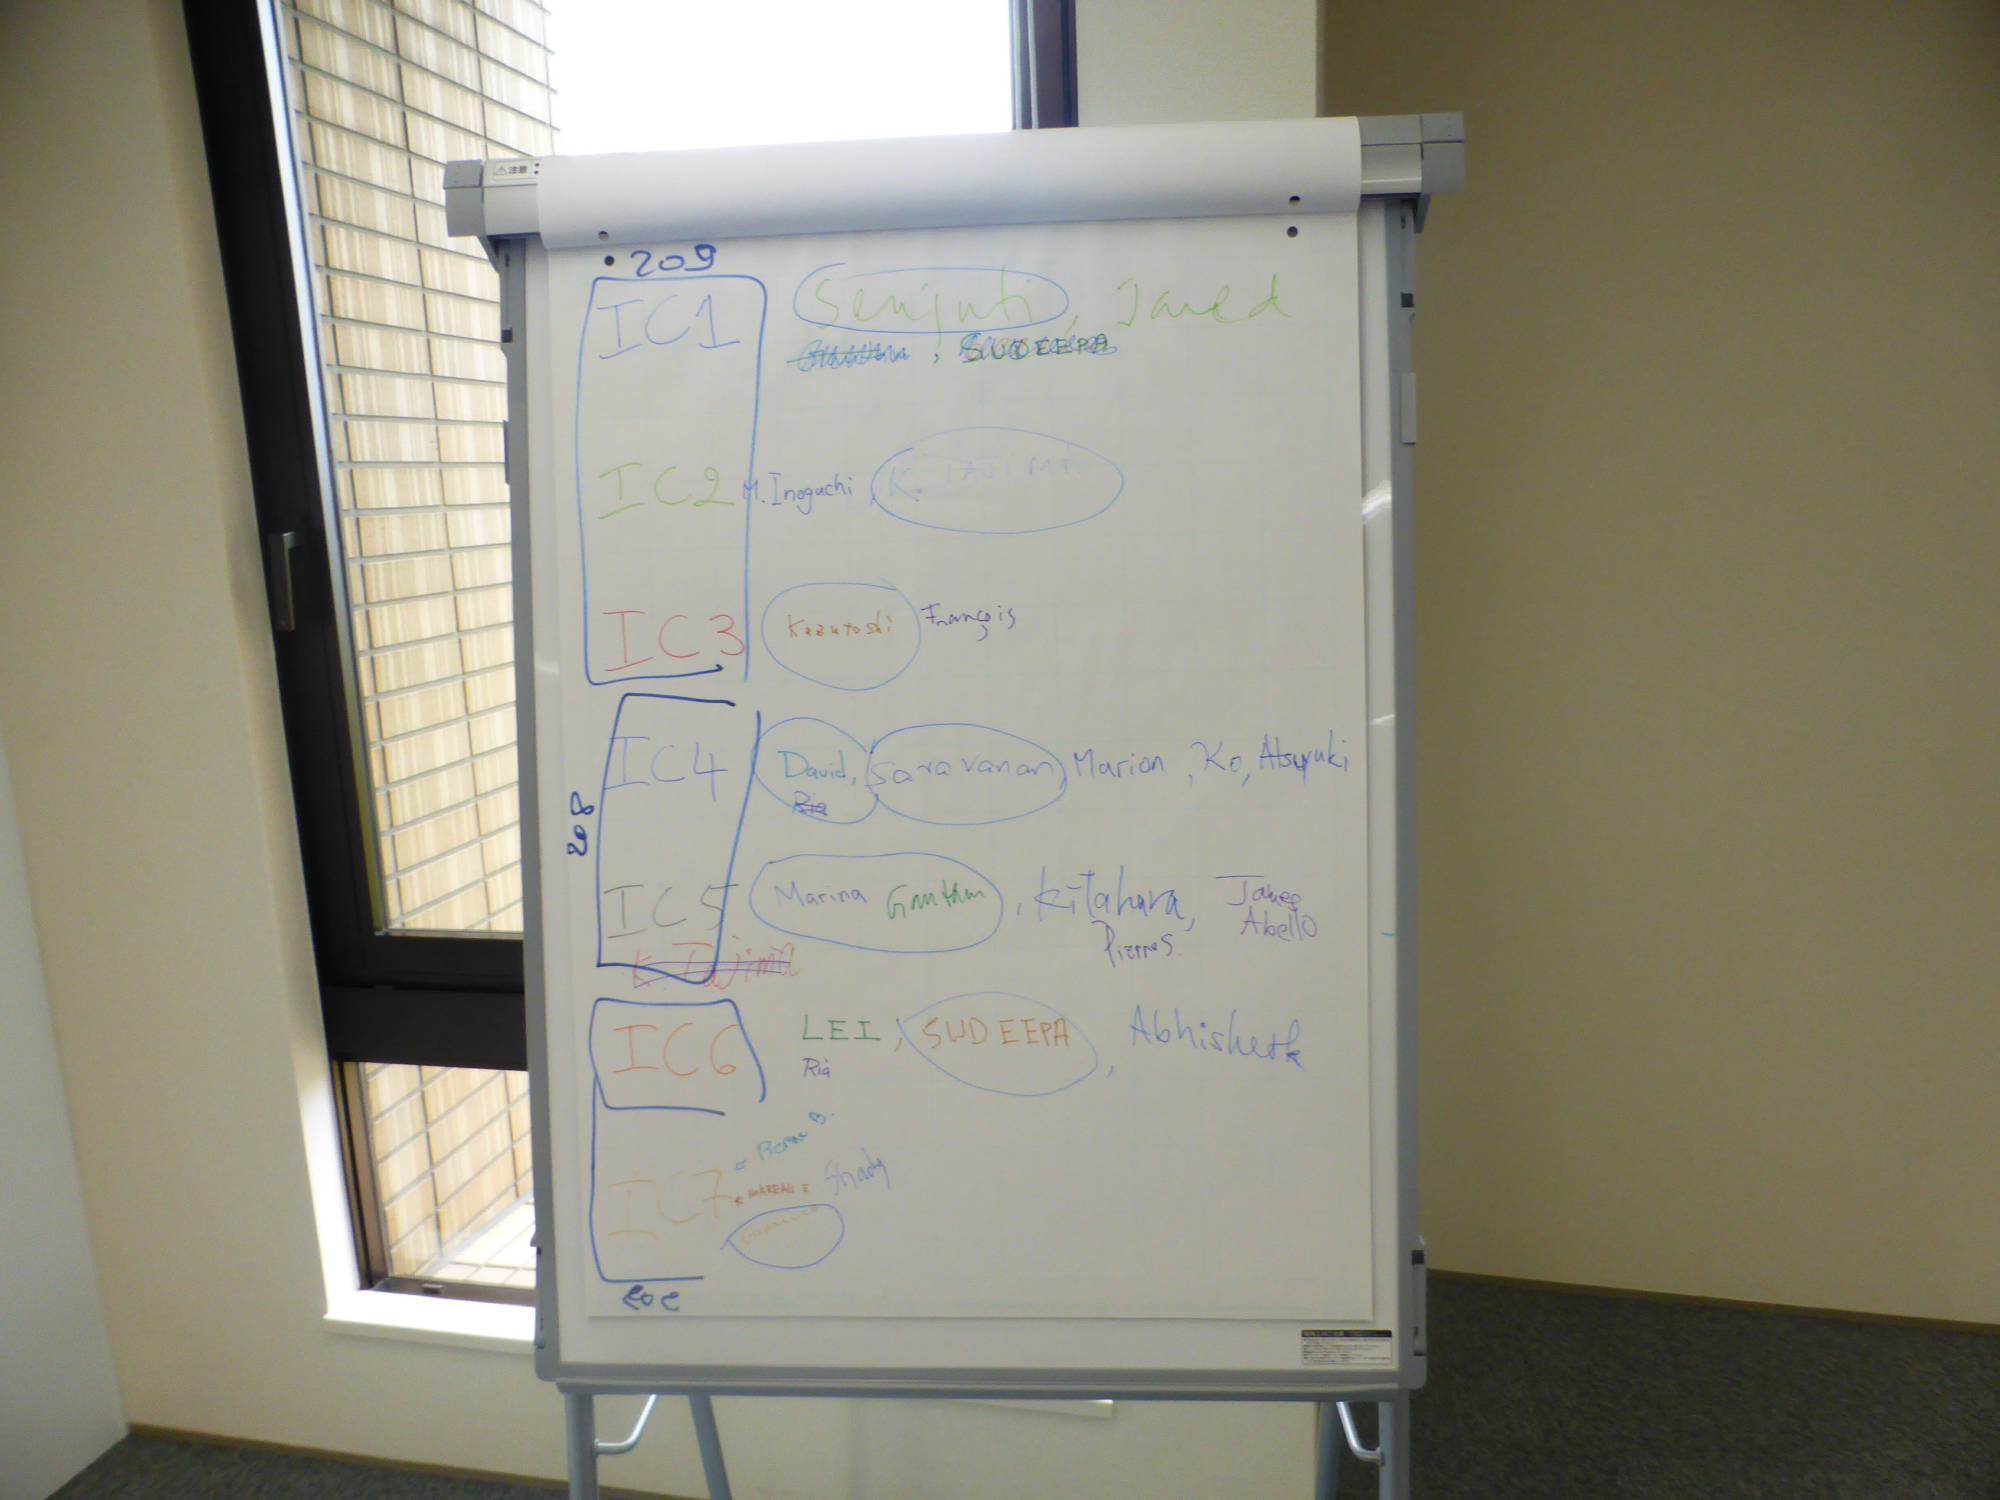 注意
209
IC1 Senjuti, Jared
, SUDEEPA
IC2 M. Inoguchi, K. TAJIMA
IC3 Kazutoshi François
208
IC4 David, Saravanan, Marion, Ko, Atsuyuki
Ria
IC5 Marina Gautam, Kitahara, James Abello
Pierres.
K. Tajima
IC6 LEI, SUDEEPA, Abhishek
Ria
IC7 Shady